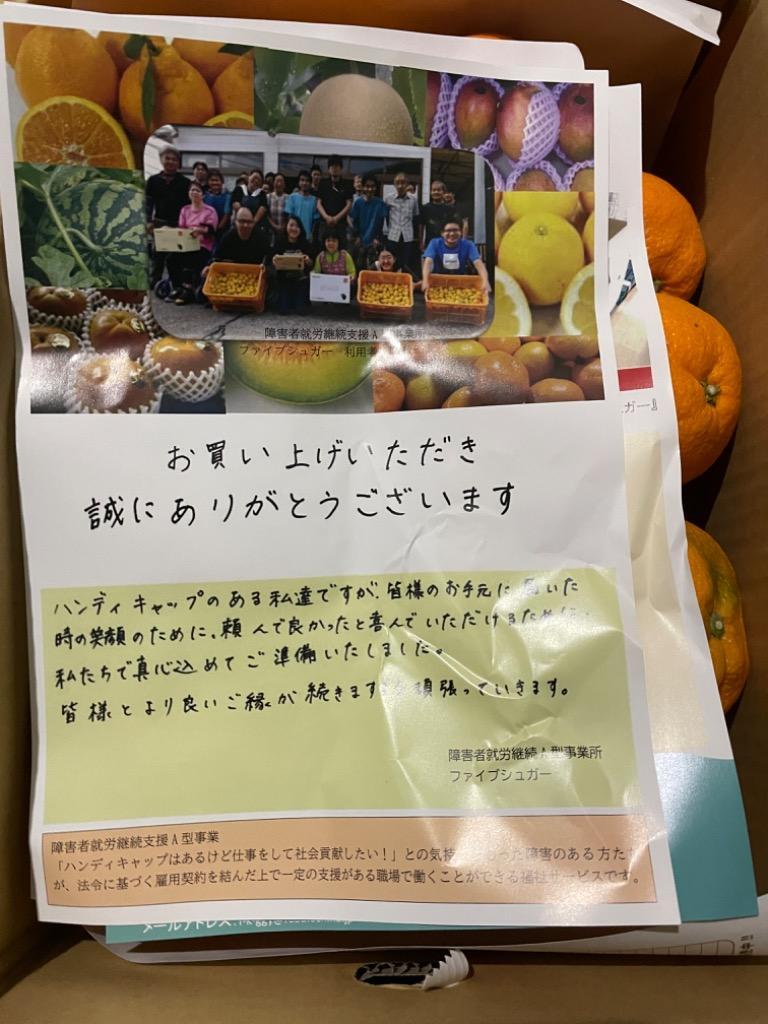 障害者就労継続支援A型事業所
ファイブシュガー 利用
ガー』
お買い上げいただき
誠にありがとうございます
ハンディキャップのある私達ですが、皆様のお手元に いた
時の笑顔のために、頼んで良かったと喜んでいただけるために、
私たちで真心込めてご準備いたしました。
皆様とより良いご縁が続きます 頑張っていきます。
障害者就労継続A型事業所
ファイブシュガー
障害者就労継続支援A型事業
「ハンディキャップはあるけど仕事をして社会貢献したい!」との気持 った障害のある方た
が、法令に基づく雇用契約を結んだ上で一定の支援がある職場で働くことができる福祉サービスです。
メールアドレス